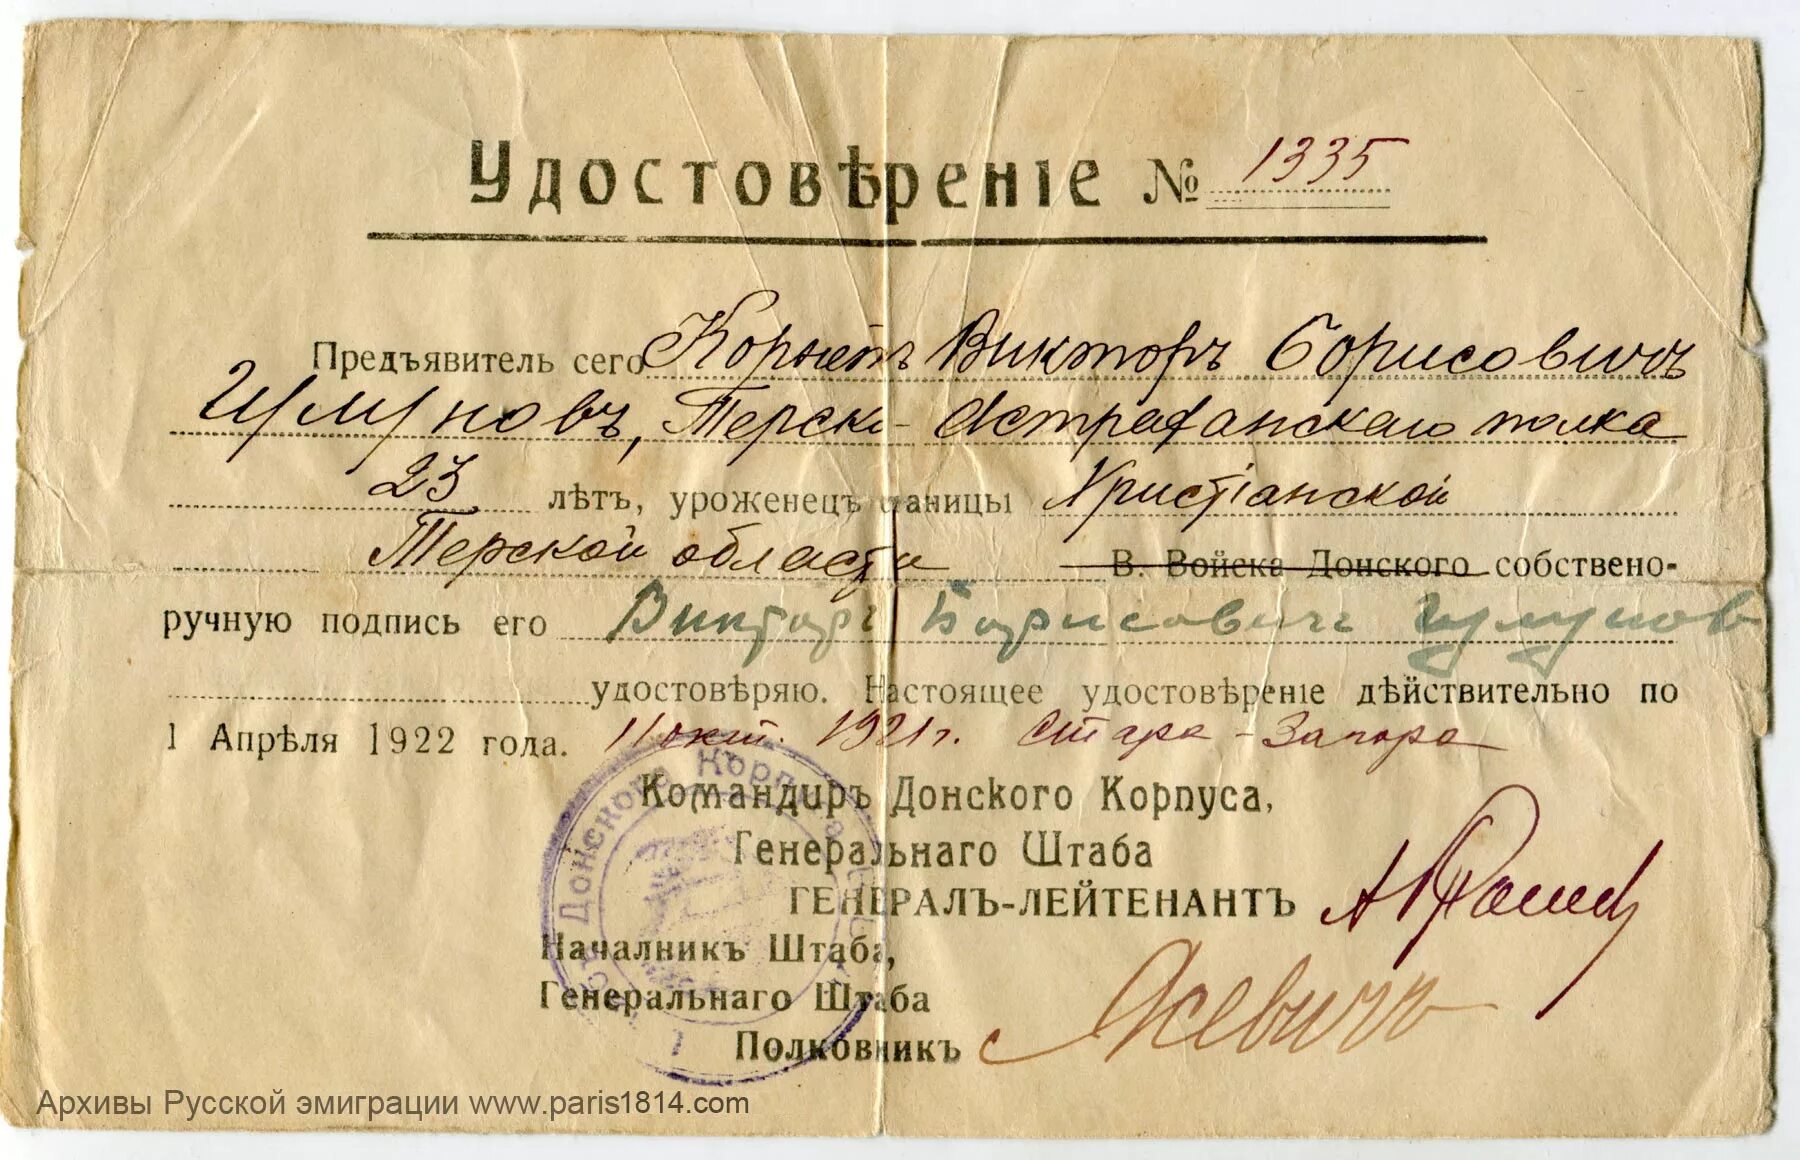 Удостовѣреніе № 1335
Предъявитель сего Корнетъ Викторъ Борисовичъ
Цумуновъ, Терско-Астраханскаго полка
23 лѣтъ, уроженецъ станицы Христіанской
Терской области В. Войска Донского собствено-
ручную подпись его Викторъ Борисовичъ Цумуновъ
удостовѣряю. Настоящее удостовѣреніе дѣйствительно по
1 Апрѣля 1922 года. 11 окт. 1921 г. Стара-Загора
Командиръ Донского Корпуса,
Генеральнаго Штаба
ГЕНЕРАЛЪ-ЛЕЙТЕНАНТЪ
Началникъ Штаба,
Генеральнаго Штаба
Полковникъ Ясевичъ
Донского Корпуса
Архивы Русской эмиграции www.paris1814.com